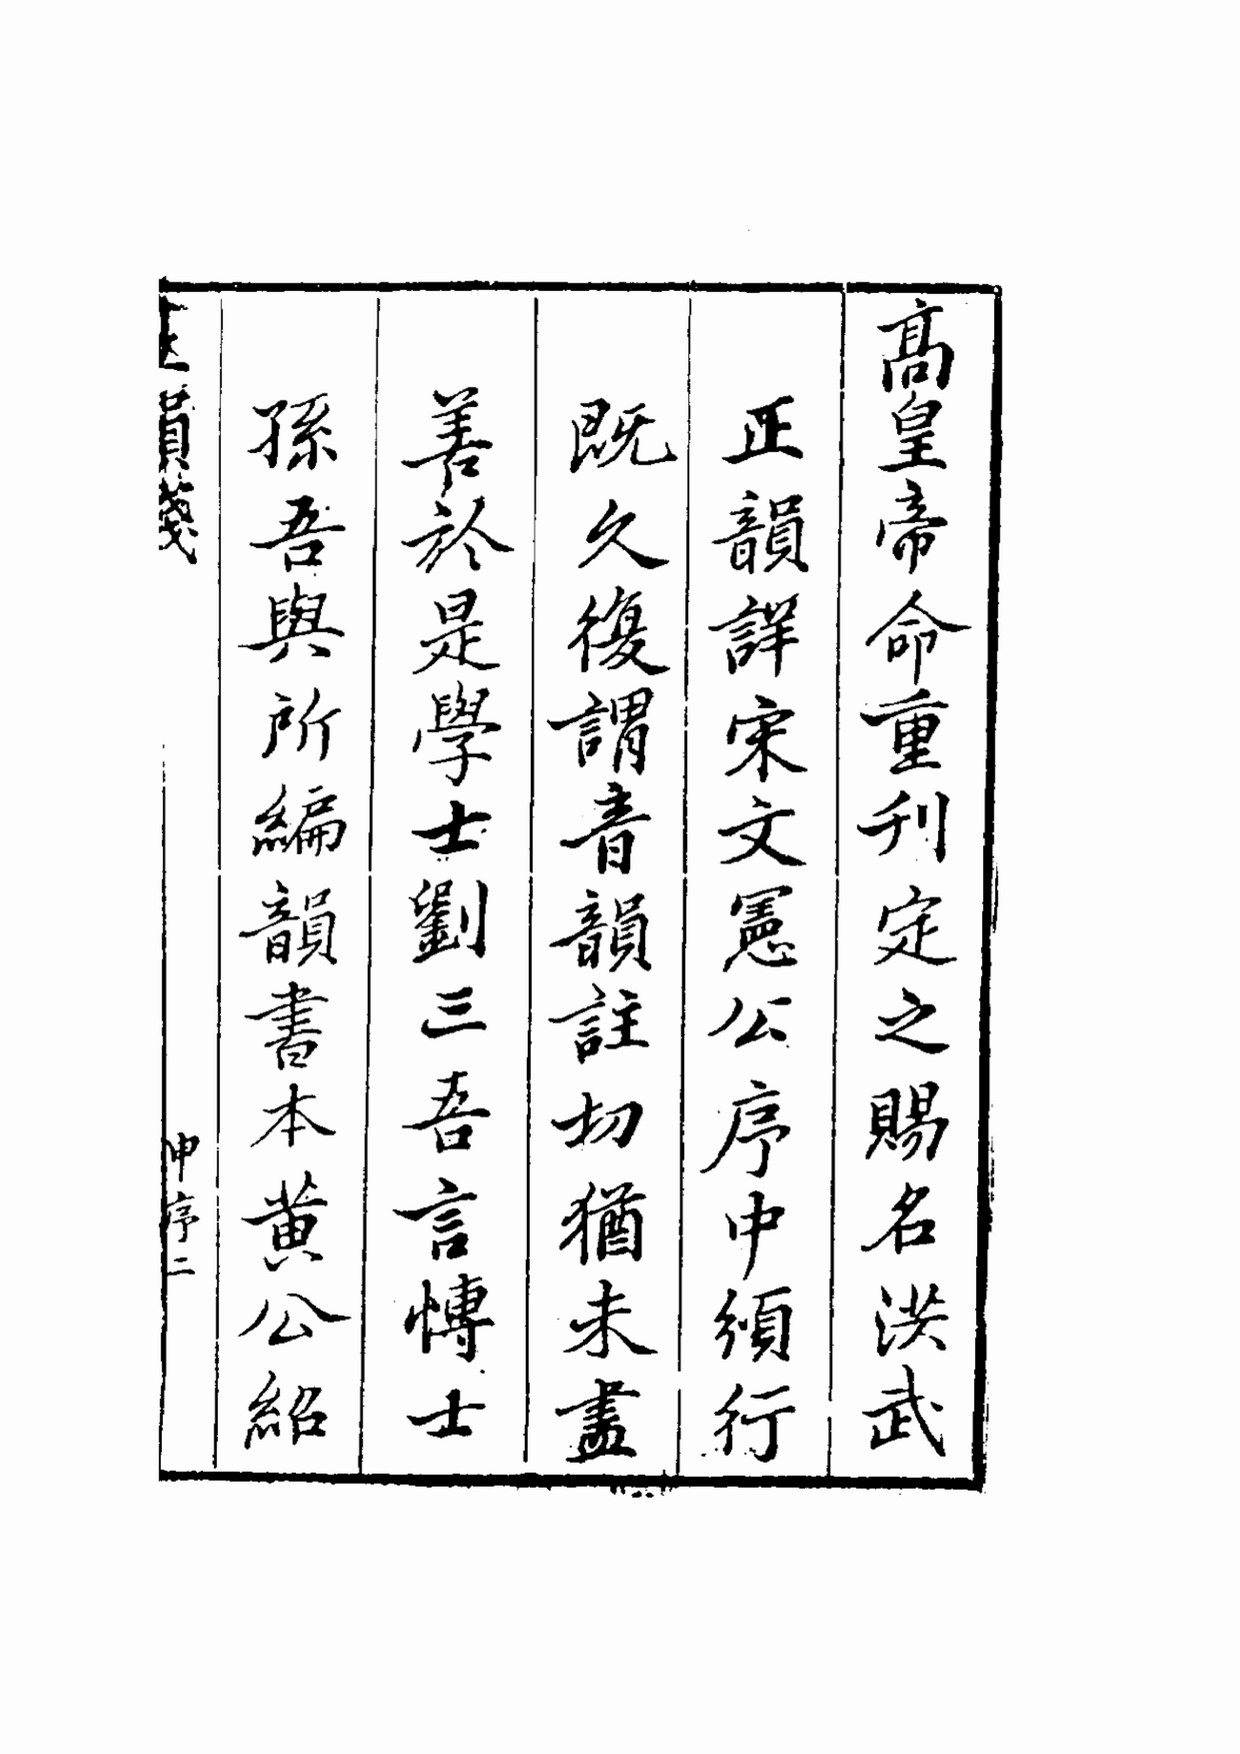 高皇帝命重刋定之賜名洪武
正韻詳宋文憲公序中頒行
既久復謂音韻註切猶未盡
善於是學士劉三吾言博士
孫吾與所編韻書本黄公紹
韻箋
申序二